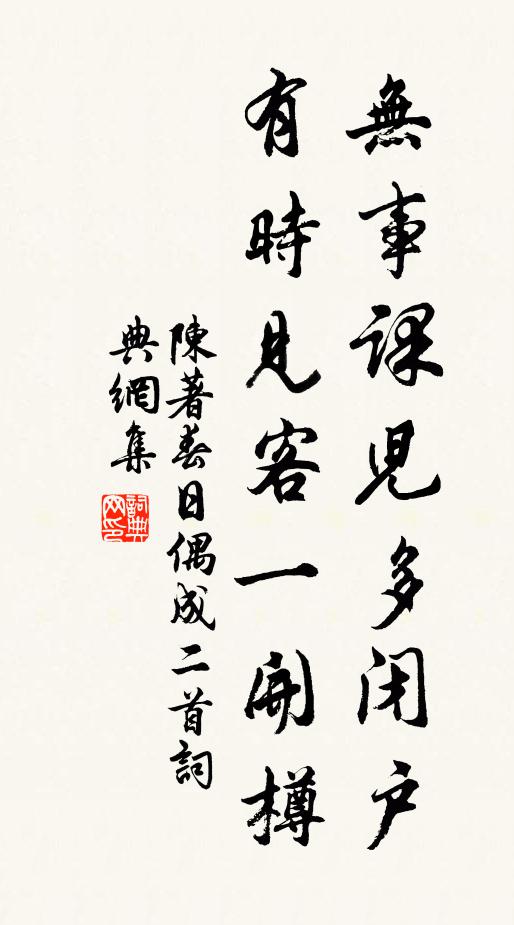 無事課児多闭户
有時見客一開樽
陳著春日偶成二首詞
典網集
詞典
网印